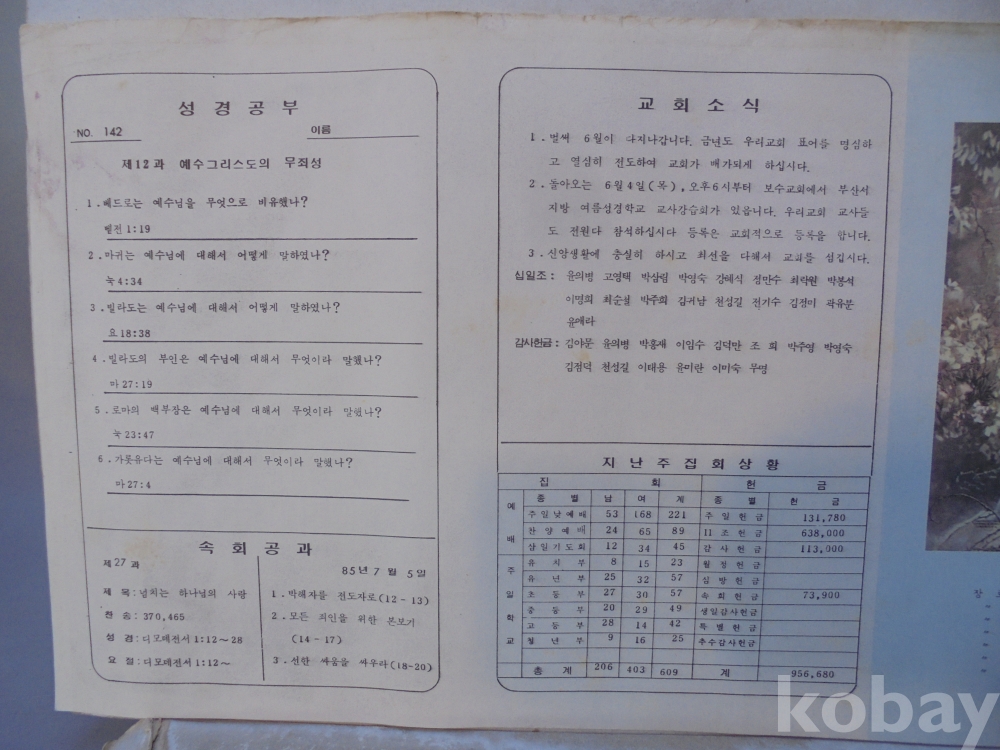 성경공부
NO. 142
이름
제12과 예수그리스도의 무죄성
1.베드로는 예수님을 무엇으로 비유했나?
벧전1:19
2.마귀는 예수님에 대해서 어떻게 말하였나?
눅4:34
3.빌라도는 예수님에 대해서 어떻게 말하였나?
요18:38
4.빌라도의 부인은 예수님에 대해서 무엇이라 말했나?
마27:19
5.로마의 백부장은 예수님에 대해서 무엇이라 말했나?
눅23:47
6.가롯유다는 예수님에 대해서 무엇이라 말했나?
마27:4
속회공과
제27과
85년 7월 5일
제 목:넘치는 하나님의 사랑
찬 송:370,465
성 경:디모데전서1:12~28
요 절:디모데전서1:12~
1.박해자를 전도자로(12-13)
2.모든 죄인을 위한 본보기
(14-17)
3.선한 싸움을 싸우라(18-20)
교회소식
1.벌써 6월이 다지나갑니다. 금년도 우리교회 표어를 명심하
고 열심히 전도하여 교회가 배가되게 하십시다.
2.돌아오는 6월4일(목),오후6시부터 보수교회에서 부산서
지방 여름성경학교 교사강습회가 있읍니다. 우리교회 교사들
도 전원다 참석하십시다 등록은 교회적으로 등록을 합니다.
3.신앙생활에 충실히 하시고 최선을 다해서 교회를 섬깁시다.
십일조: 윤의병 고영택 박삼림 박영숙 강혜식 정만수 최락원 박봉석
이명희 최순설 박주희 김귀남 천성길 전기수 김정미 곽유분
윤애라
감사헌금: 김아문 윤의병 박흥재 이임수 김덕만 조 희 박주영 박영숙
김점덕 천성길 이태용 윤미란 이미숙 무명
지난주집회상황
집 회 헌 금
종별 남 여 계 종별 헌금
예배
주일낮예배 53 168 221 주일헌금 131,780
찬양예배 24 65 89 11조헌금 638,000
삼일기도회 12 34 45 감사헌금 113,000
주일학교
유치부 8 15 23 월정헌금
유년부 25 32 57 심방헌금
초등부 27 30 57 속회헌금 73,900
중등부 20 29 49 생일감사헌금
고등부 28 14 42 특별헌금
청년부 9 16 25 추수감사헌금
총계 206 403 609 계 956,680
장
kobay